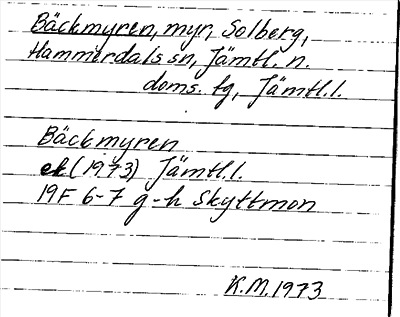 Bäckmyren, myr, Solberg,
Hammerdals sn, Jämtl. n.
doms. fg, Jämtl.l.
Bäckmyren
ek (1973) Jämtl.l.
19F 6-7 g-h Skyttmon
K.M. 1973